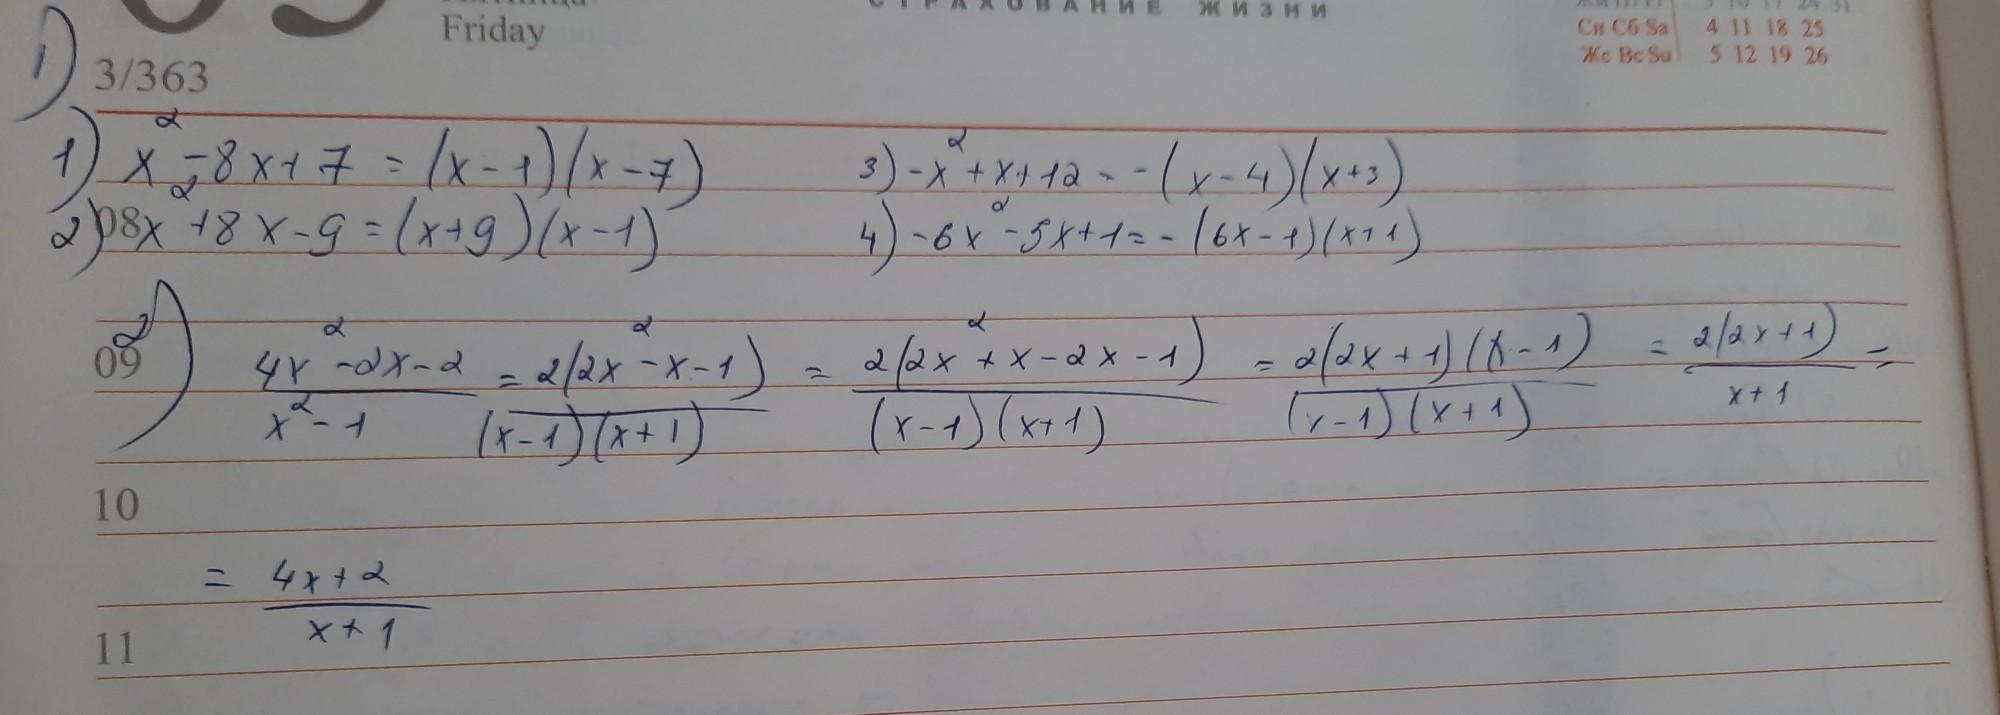 Friday
СТРАХОВАНИЕ ЖИЗНИ
Сн Сб Sa 4 11 18 25
Жс Вс Su 5 12 19 26
1)
3/363
1) x² - 8x + 7 = (x - 1)(x - 7)
3) -x² + x + 12 = -(x - 4)(x + 3)
08
2) x² + 8x - 9 = (x + 9)(x - 1)
4) -6x² - 5x + 1 = -(6x - 1)(x + 1)
09
2) (4x² - 2x - 2)/(x² - 1) = 2(2x² - x - 1)/((x - 1)(x + 1)) = 2(2x² + x - 2x - 1)/((x - 1)(x + 1)) = 2(2x + 1)(x - 1)/((x - 1)(x + 1)) = 2(2x + 1)/(x + 1) =
10
= (4x + 2)/(x + 1)
11